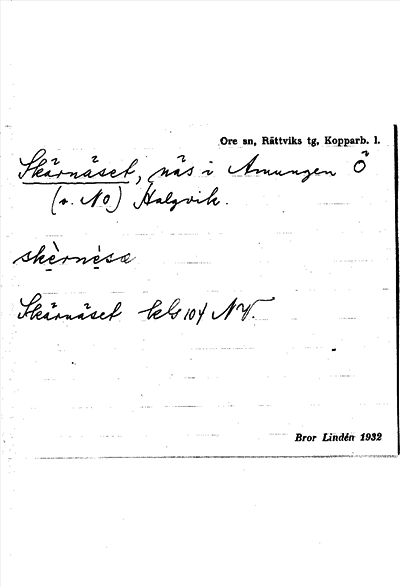 Ore sn, Rättviks tg, Kopparb. l.
Skärnäset, näs i Amungen Ö
(v. NO) Halgvik.
skèrnèsæ
Skärnäset kbl 104 NV.
Bror Lindén 1932